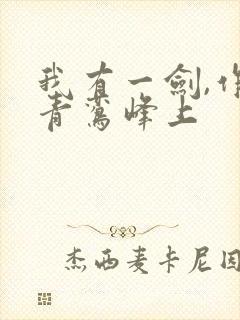 我有一劍,作
青鶯峰上
杰西麦卡尼因